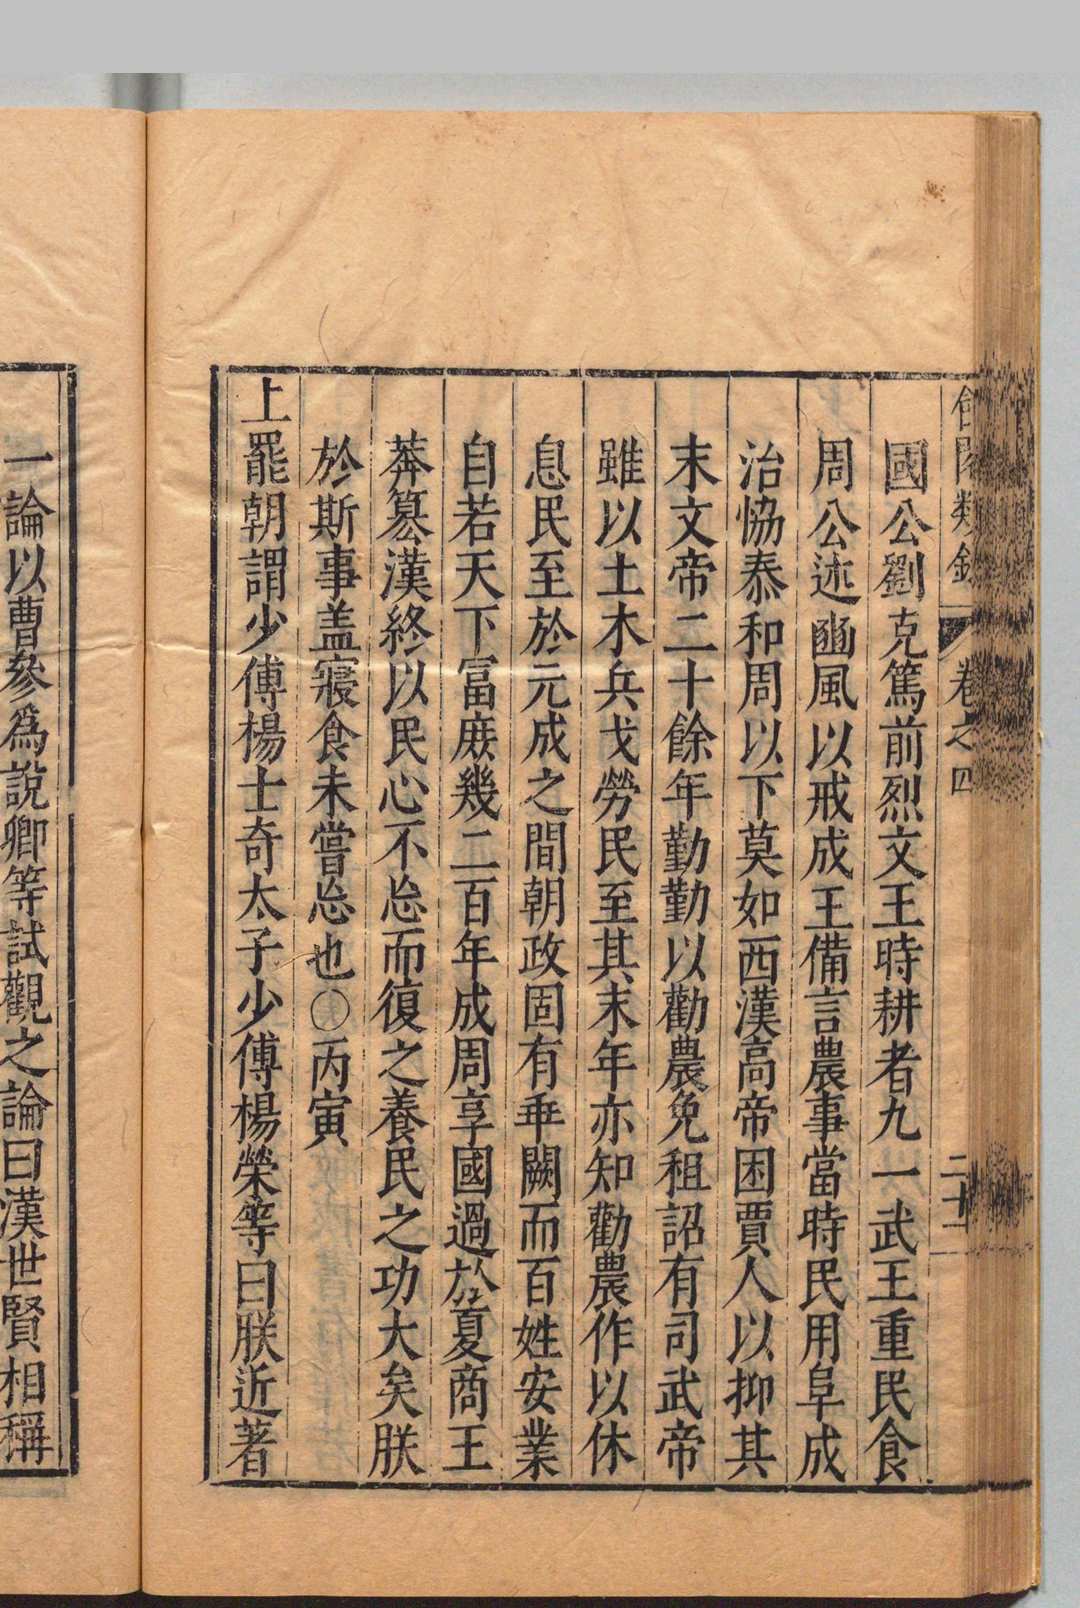 館閣類錄
卷之四
二十二
國公劉克篤前烈文王時耕者九一武王重民食
周公述豳風以戒成王備言農事當時民用阜成
治恊泰和周以下莫如西漢高帝困賈人以抑其
末文帝二十餘年勤勤以勸農免租詔有司武帝
雖以土木兵戈勞民至其末年亦知勸農作以休
息民至於元成之間朝政固有乖闕而百姓安業
自若天下富庶幾二百年成周享國過於夏商王
莾篡漢終以民心不㤀而復之養民之功大矣朕
於斯事盖寢食未嘗㤀也○丙寅
上罷朝謂少傅楊士奇太子少傅楊榮等曰朕近著
一論以曹參爲說卿等試觀之論曰漢世賢相稱